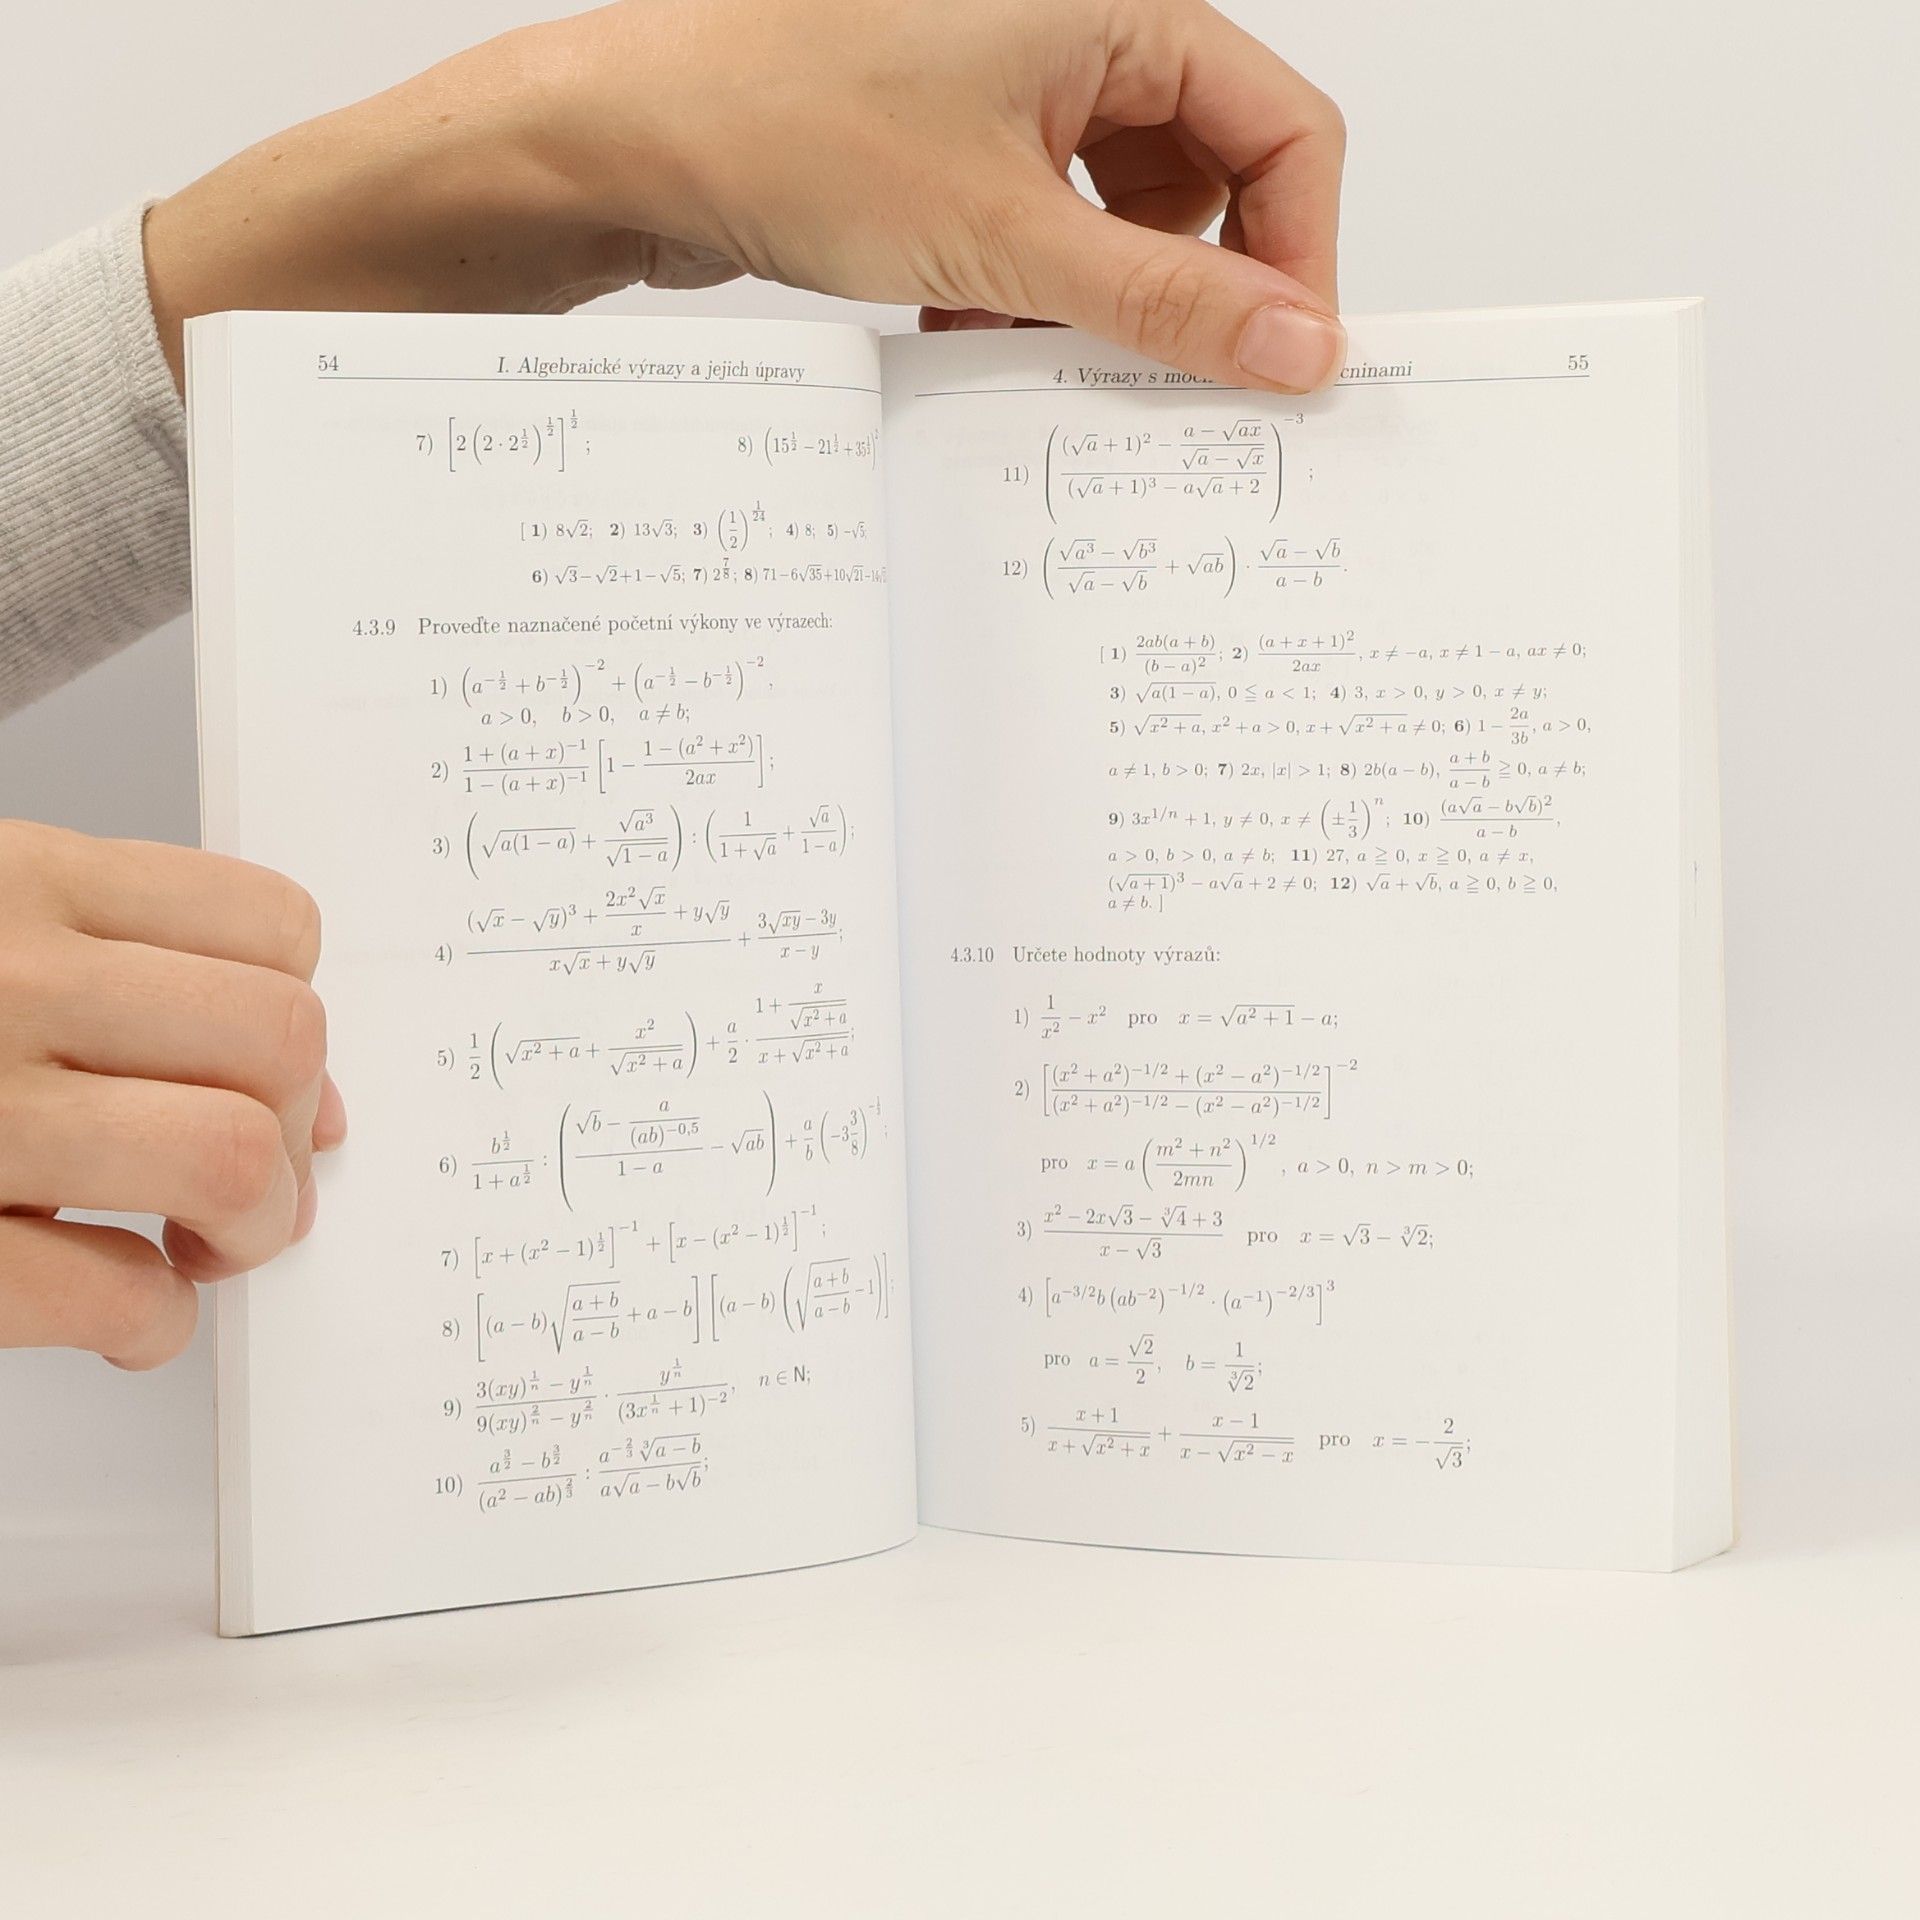 54 I. Algebraické výrazy a jejich úpravy
7) [2(2 · 2^{1/2})^{1/2}]^{1/2}; 8) (15^{1/2} − 21^{1/2} + 35^{1/2})^2
[ 1) 8√2; 2) 13√3; 3) (1/2)^{1/24}; 4) 8; 5) −√5;
6) √3−√2+1−√5; 7) 2^{7/8}; 8) 71−6√35+10√21−14√
4.3.9 Proveďte naznačené početní výkony ve výrazech:
1) (a^{−1/2} + b^{−1/2})^{−2} + (a^{−1/2} − b^{−1/2})^{−2},
a > 0, b > 0, a ≠ b;
2) \frac{1 + (a + x)^{−1}}{1 − (a + x)^{−1}} [1 − \frac{1 − (a² + x²)}{2ax}];
3) (√(a(1 − a)) + \frac{√(a³)}{√(1 − a)}) : (\frac{1}{1 + √a} + \frac{√a}{1 − a});
4) \frac{(√x − √y)³ + \frac{2x²√x}{x} + y√y}{x√x + y√y} + \frac{3√(xy) − 3y}{x − y};
5) \frac{1}{2} (√(x² + a) + \frac{x²}{√(x² + a)}) + \frac{a}{2} · \frac{1 + \frac{x}{√(x² + a)}}{x + √(x² + a)};
6) \frac{b^{1/2}}{1 + a^{1/2}} : (\frac{√b − \frac{a}{(ab)^{−0,5}}}{1 − a} − √(ab)) + \frac{a}{b} (−3\frac{3}{8})^{−1/3};
7) [x + (x² − 1)^{1/2}]^{−1} + [x − (x² − 1)^{1/2}]^{−1};
8) [(a − b)√(\frac{a + b}{a − b}) + a − b] [(a − b) (√(\frac{a + b}{a − b}) − 1)];
9) \frac{3(xy)^{1/n} − y^{1/n}}{9(xy)^{2/n} − y^{2/n}} · \frac{y^{1/n}}{(3x^{1/n} + 1)^{−2}}, n ∈ N;
10) \frac{a^{3/2} − b^{3/2}}{(a² − ab)^{2/3}} : \frac{a^{−2/3} ∛(a − b)}{a√a − b√b};
4. Výrazy s moc cninami 55
11) (\frac{(√a + 1)² − \frac{a − √(ax)}{√a − √x}}{(√a + 1)³ − a√a + 2})^{−3};
12) (\frac{√(a³) − √(b³)}{√a − √b} + √(ab)) · \frac{√a − √b}{a − b}.
[ 1) \frac{2ab(a + b)}{(b − a)²}; 2) \frac{(a + x + 1)²}{2ax}, x ≠ −a, x ≠ 1 − a, ax ≠ 0;
3) √(a(1 − a)), 0 ≦ a < 1; 4) 3, x > 0, y > 0, x ≠ y;
5) √(x² + a), x² + a > 0, x + √(x² + a) ≠ 0; 6) 1 − \frac{2a}{3b}, a > 0,
a ≠ 1, b > 0; 7) 2x, |x| > 1; 8) 2b(a − b), \frac{a + b}{a − b} ≧ 0, a ≠ b;
9) 3x^{1/n} + 1, y ≠ 0, x ≠ (±\frac{1}{3})^n; 10) \frac{(a√a − b√b)²}{a − b},
a > 0, b > 0, a ≠ b; 11) 27, a ≧ 0, x ≧ 0, a ≠ x,
(√(a + 1))³ − a√a + 2 ≠ 0; 12) √a + √b, a ≧ 0, b ≧ 0,
a ≠ b. ]
4.3.10 Určete hodnoty výrazů:
1) \frac{1}{x²} − x² pro x = √(a² + 1) − a;
2) [\frac{(x² + a²)^{−1/2} + (x² − a²)^{−1/2}}{(x² + a²)^{−1/2} − (x² − a²)^{−1/2}}]^{−2}
pro x = a (\frac{m² + n²}{2mn})^{1/2}, a > 0, n > m > 0;
3) \frac{x² − 2x√3 − ∛4 + 3}{x − √3} pro x = √3 − ∛2;
4) [a^{−3/2}b (ab^{−2})^{−1/2} · (a^{−1})^{−2/3}]³
pro a = \frac{√2}{2}, b = \frac{1}{∛2};
5) \frac{x + 1}{x + √(x² + x)} + \frac{x − 1}{x − √(x² − x)} pro x = −\frac{2}{√3};